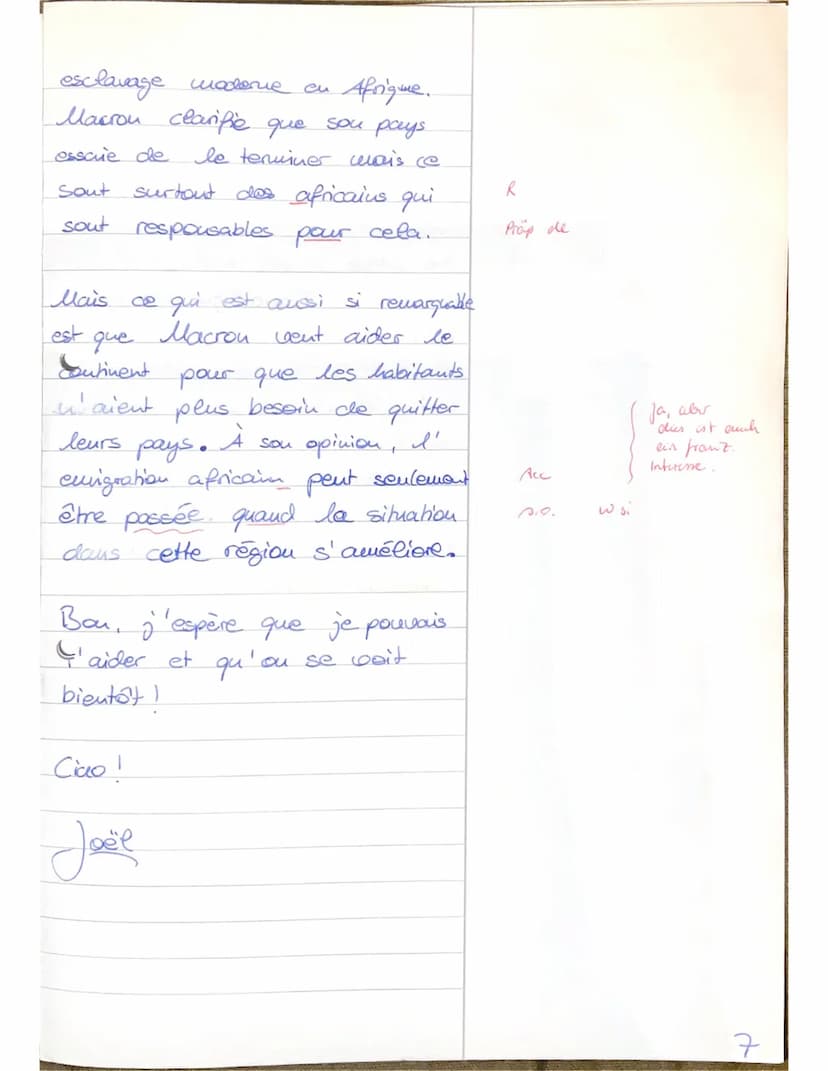 esclavage moderne en Afrique.
Macron clarifie que son pays
essaie de le terminer mais ce
sont surtout des africains qui
R
sont responsables pour cela.
Präp de
Mais ce qui est aussi si remarquable
est que Macron veut aider le
continent pour que les habitants
n'aient plus besoin de quitter
leurs pays. À son opinion, l'
émigration africain peut seulement
être passée quand la situation
dans cette région s'améliore.
Ja, aber
dies ist auch
ein franz.
Interesse.
Acc
s.o. W si
Bon, j'espère que je pouvais
t'aider et qu'on se voit
bientôt!
Ciao!
Joël
7